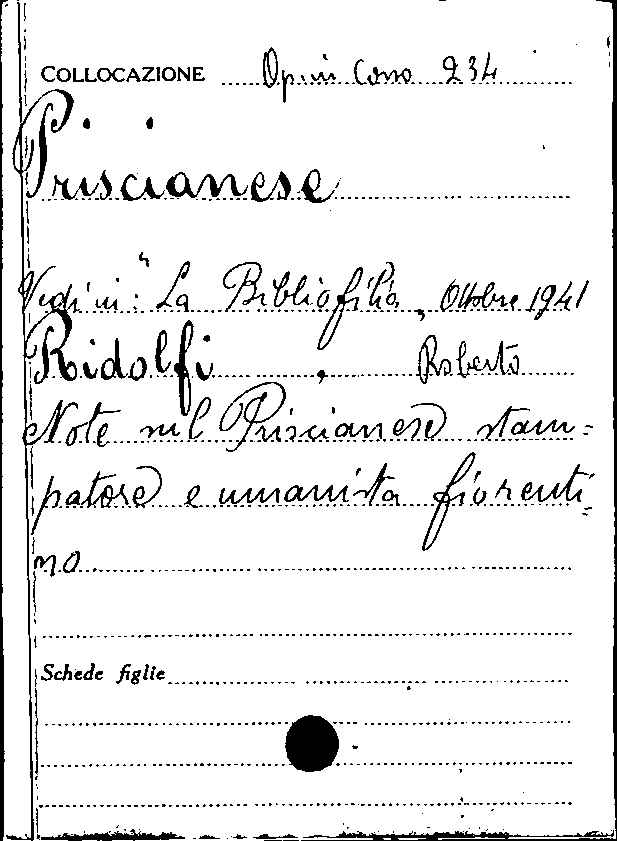 COLLOCAZIONE Opus Cons 234
Priscianese
Vedi in: "La Bibliofilia, Ottobre 1941
Ridolfi, Roberto
Note sul Priscianese stam=
patore e umanista fiorenti=
no
Schede figlie